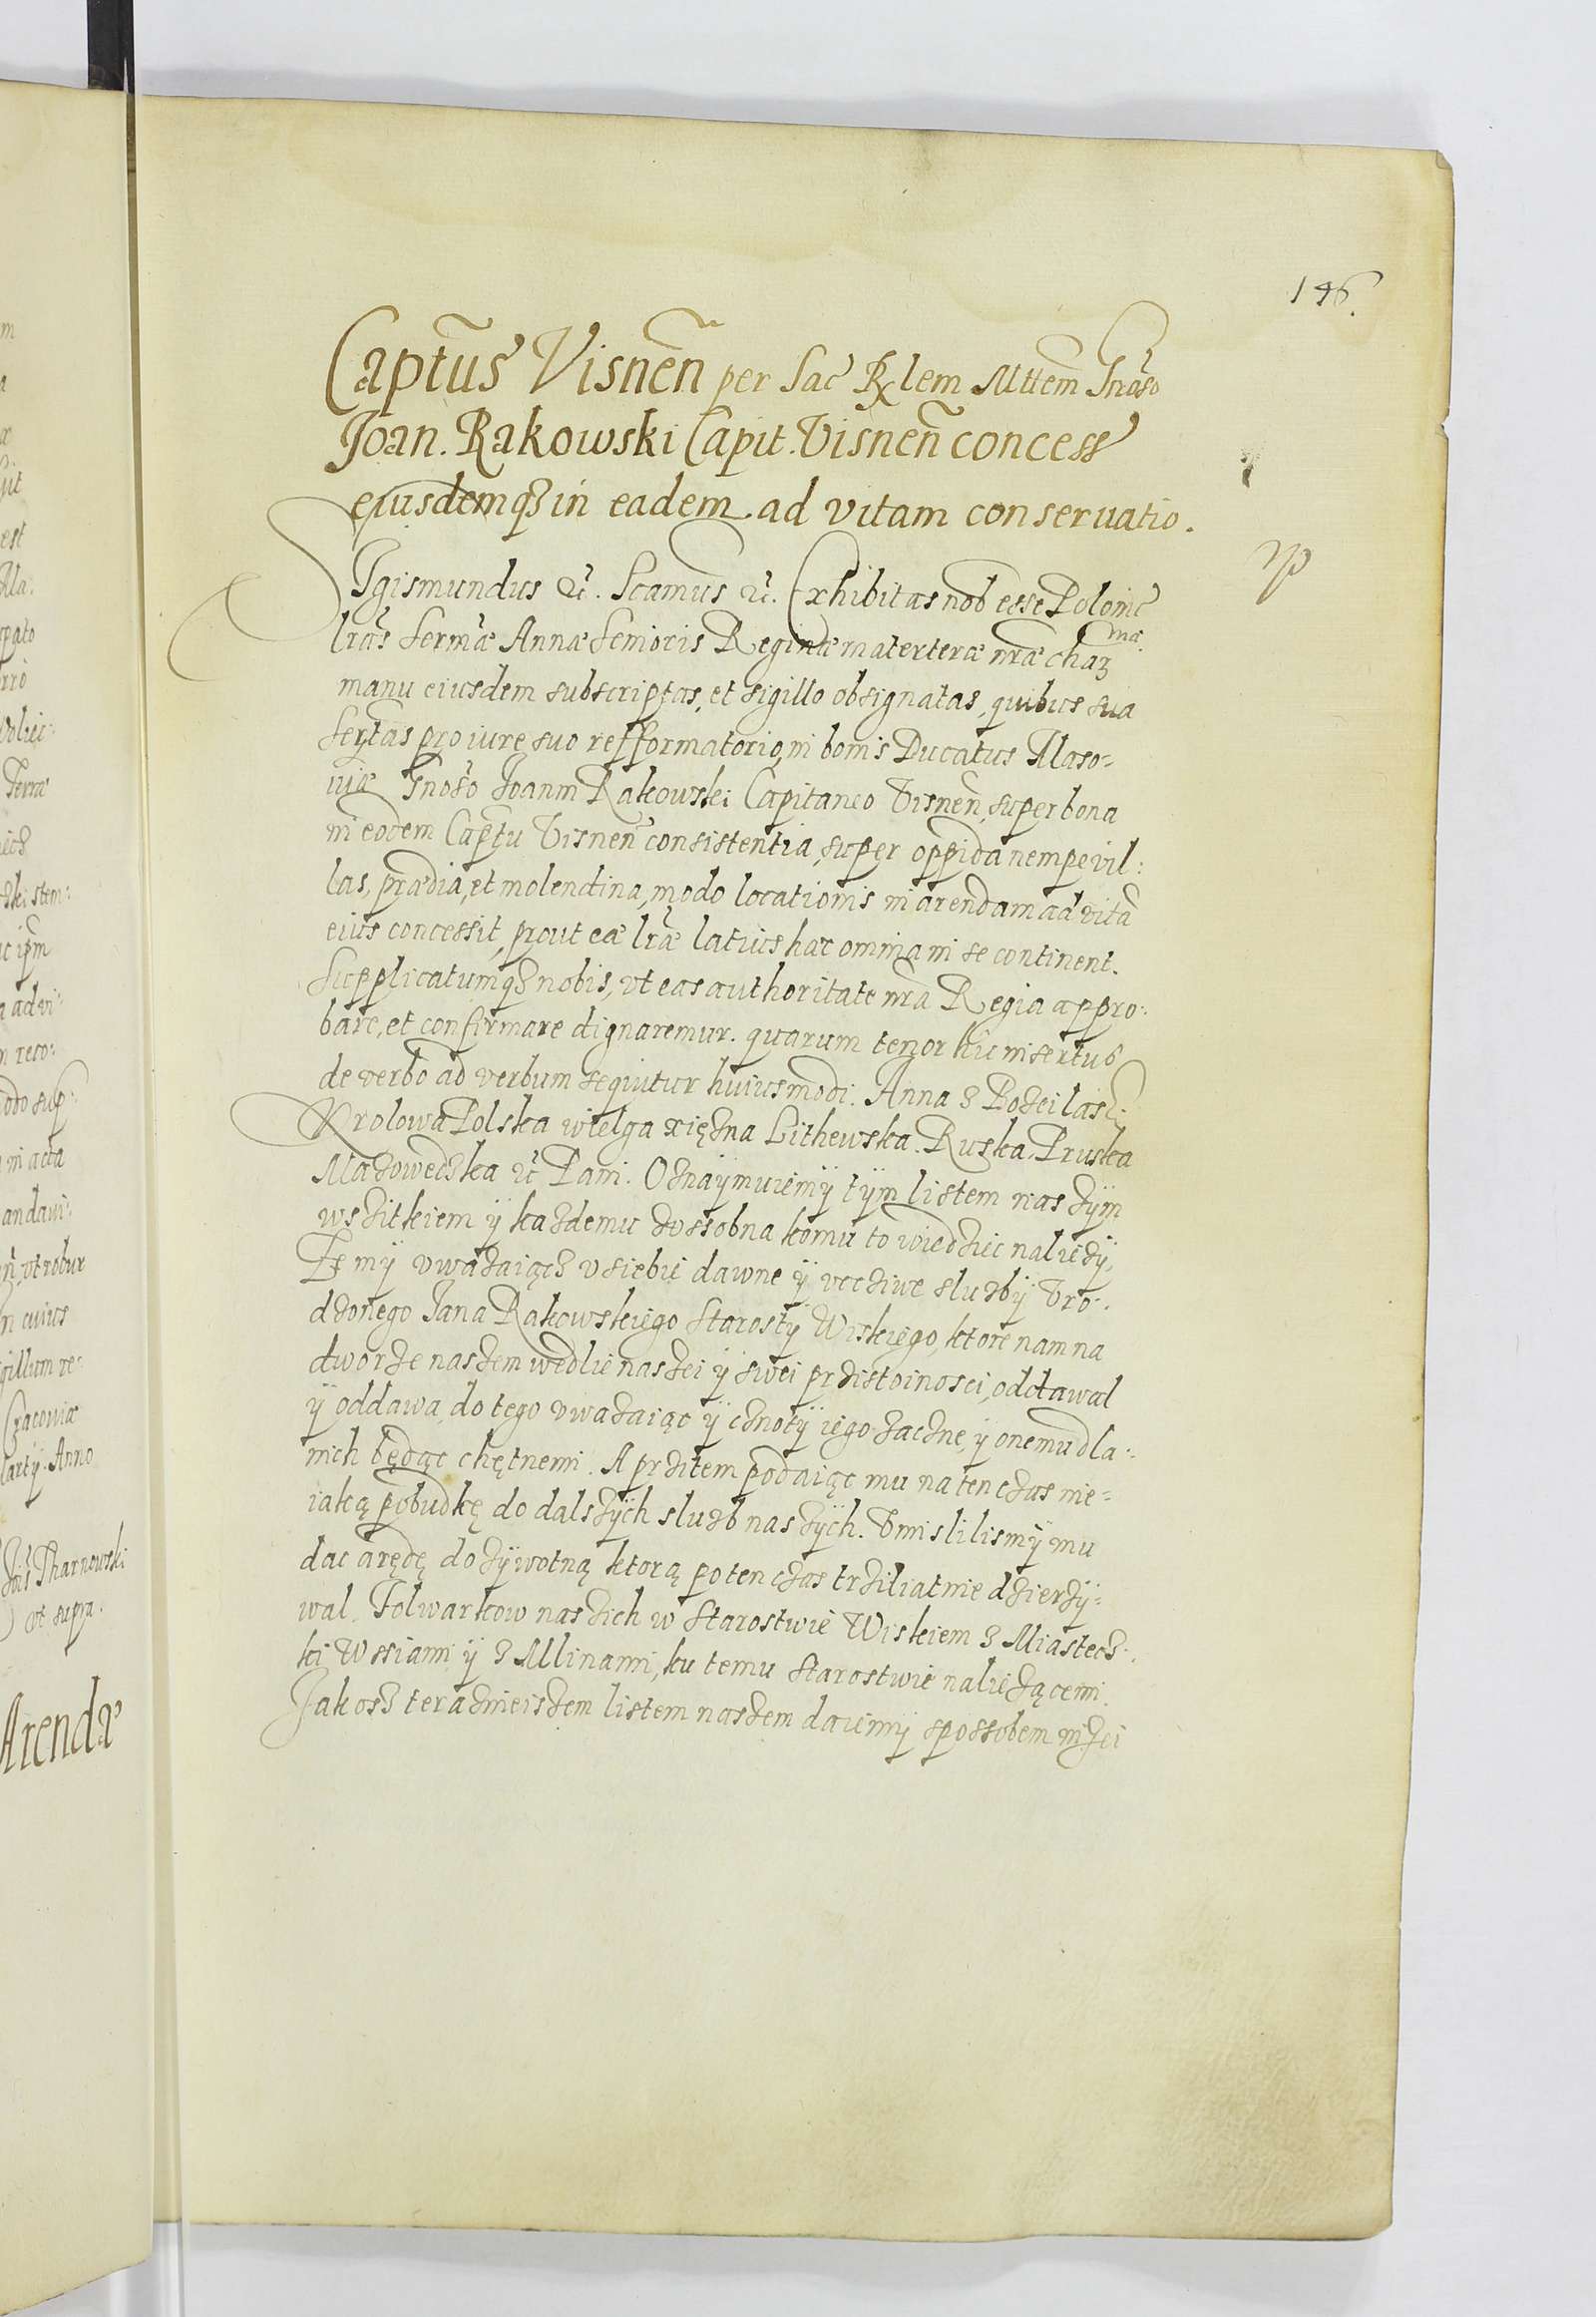 146.
Captus Visnen̄ per Sac Rlem Mttem Gnoso
Joan. Rakowski Capit. Visnen̄ concess
eiusdemqз in eadem ad vitam conseruatio.
Sigismundus etc. Scamus etc. Exhibitas nob esse Polonic
lras Sermæ Annæ Senioris Reginæ materteræ nræ chaꝫ mæ.
manu eiusdem subscriptas, et sigillo obsignatas, quibus sua
Sertas pro iure suo refformatorio, in bonis Ducatus Maso=
uiæ Gnoso Joanni Rakowski Capitaneo Visnen̄, super bona
in eodem Captu Visnen̄ consistentia, super oppida nempe vil:
las, prædia, et molendina, modo locationis in arendam ad vitā
eius concessit, prout eæ lræ latius hæc omnia in se continent.
Supplicatumqз nobis, vt eas authoritate nrā Regia appro:
bare, et confirmare dignaremur. quarum tenor hic insertus
de verbo ad verbum sequitur huiusmodi. Anna z Bożei łaski
Krolowa Polska wielga xiężna Lithewska. Ruska. Pruska
Mazowedzka etc Pani. Oznaÿmuiemÿ tÿm listem naszÿm
wszitkiem ÿ kazdemu zossobna komu to wiedziec należÿ,
Że mÿ vwazaiącz v siebie dawne ÿ vcciwe sluzbÿ Vro:
dzonego Jana Rakowskiego Starostÿ Wiskiego, ktore nam na
dworze naszem wedlie naszei ÿ swei przistoinosci, oddawal
ÿ oddawa, do tego vwazaiąc ÿ cznotÿ iego zaczne, ÿ onemu dla:
nich będąc chętnemi. A przitem podaiąc mu na ten czas nie=
iaką pobudkę do dalszÿch sluzb naszÿch. Vmislilismÿ mu
dac arędę dozÿwotną ktorą po ten czas trziliatnie dzierzÿ=
wal. Folwarkow naszich w Starostwie Wiskiem z Miastecz:
ki Wssiami ÿ z Mlinami, ku temu Starostwie należącemi.
Jakosz teraznieiszem listem naszem daiemÿ spossobem niżei